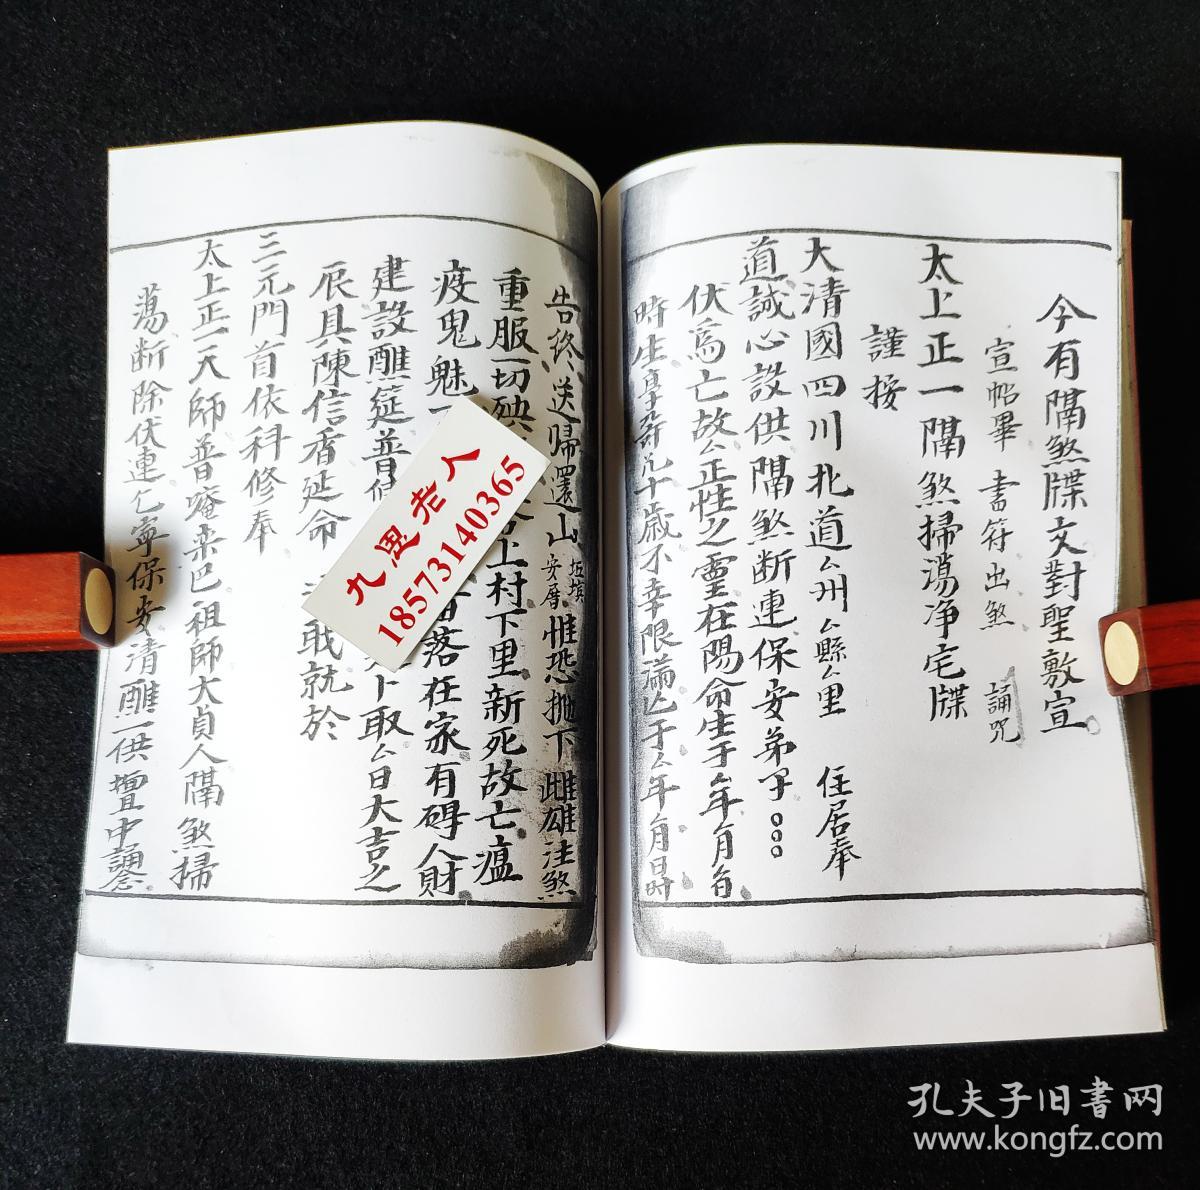 今有隔煞牒文對聖敷宣
宣帖畢 書符出煞 誦咒
太上正一隔煞掃蕩净宅牒
謹按
大清國四川北道厶州厶縣厶里 住居奉
道誠心設供隔煞斷連保安弟子○○○
伏為亡故公正性之靈在陽命生于厶年月
時生享壽九十歲不幸限滿亡于厶年月日時
告終送歸還山 墳 安厝 惟恐 下雌雄注煞
重服一切殃 上村下里新死故亡瘟
疫鬼魅 落在家有碍人財
建設醮筵普 卜取厶日大吉之
辰具陳信香延命 戢就於
三元門首依科修奉
太上正一天師普唵來巴祖師大貞人隔煞掃
蕩断除伏連乞寧保安清醮一供壇中誦念
九思老人
18573140365
孔夫子旧书网
www.kongfz.com